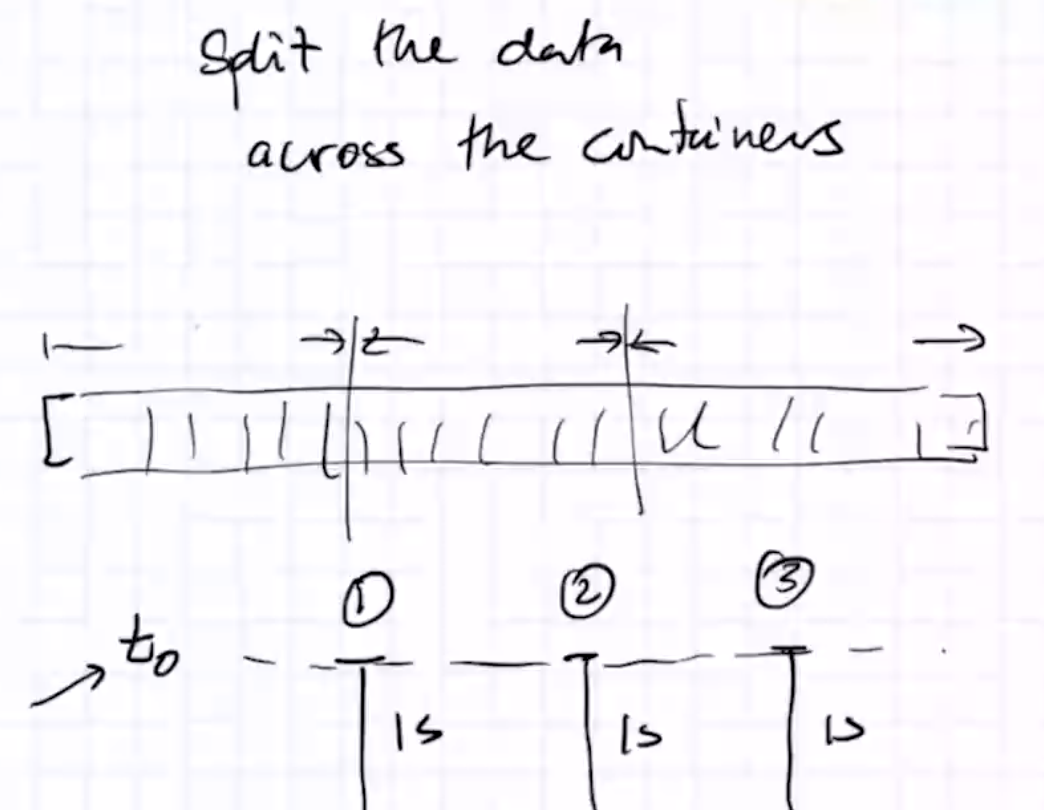 Split the data
across the containers
① ② ③
t₀
1s 1s 1s